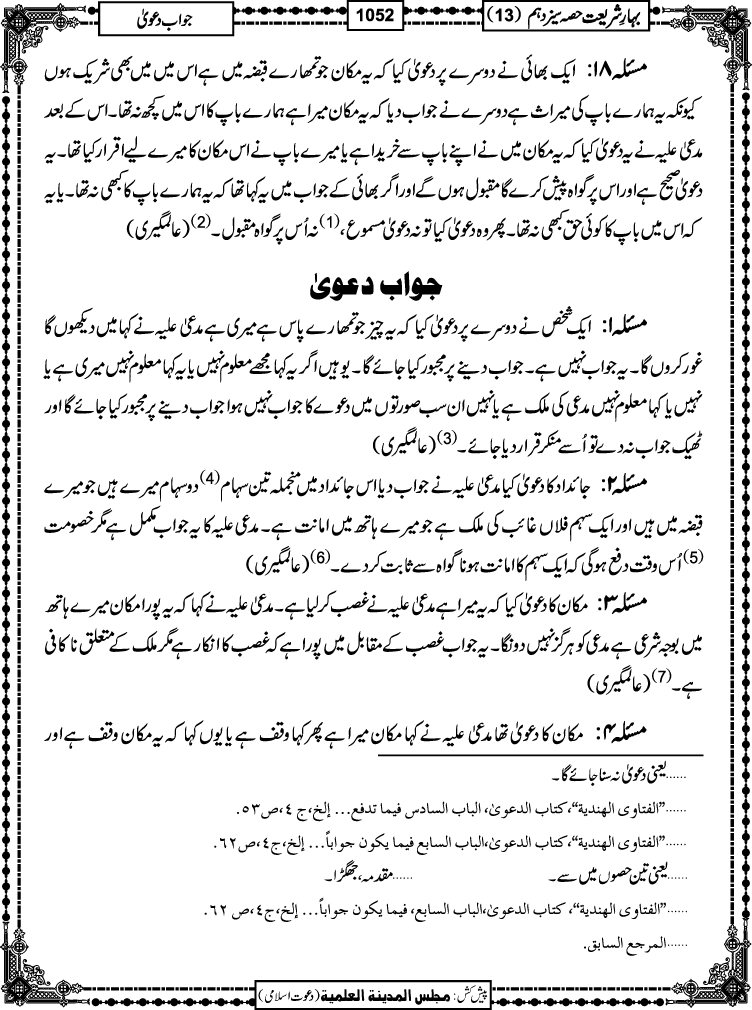 بہارِ شریعت حصہ سیزدہم (13)
1052
جواب دعویٰ
مسئلہ ۱۸: ایک بھائی نے دوسرے پر دعویٰ کیا کہ یہ مکان جو تمھارے قبضہ میں ہے اس میں میں بھی شریک ہوں
کیونکہ یہ ہمارے باپ کی میراث ہے دوسرے نے جواب دیا کہ یہ مکان میرا ہے ہمارے باپ کا اس میں کچھ نہ تھا۔ اس کے بعد
مدعیٰ علیہ نے یہ دعویٰ کیا کہ یہ مکان میں نے اپنے باپ سے خریدا ہے یا میرے باپ نے اس مکان کا میرے لیے اقرار کیا تھا۔ یہ
دعویٰ صحیح ہے اور اس پر گواہ پیش کرے گا مقبول ہوں گے اور اگر بھائی کے جواب میں یہ کہا تھا کہ یہ ہمارے باپ کا کبھی نہ تھا۔ یا یہ
کہ اس میں باپ کا کوئی حق کبھی نہ تھا۔ پھر وہ دعویٰ کیا تو نہ دعویٰ مسموع، (1) نہ اُس پر گواہ مقبول۔ (2) (عالمگیری)
جواب دعویٰ
مسئلہ ۱: ایک شخص نے دوسرے پر دعویٰ کیا کہ یہ چیز جو تمھارے پاس ہے میری ہے مدعیٰ علیہ نے کہا میں دیکھوں گا
غور کروں گا۔ یہ جواب نہیں ہے۔ جواب دینے پر مجبور کیا جائے گا۔ یوہیں اگر یہ کہا مجھے معلوم نہیں یا یہ کہا معلوم نہیں میری ہے یا
نہیں یا کہا معلوم نہیں مدعی کی ملک ہے یا نہیں ان سب صورتوں میں دعوے کا جواب نہیں ہوا جواب دینے پر مجبور کیا جائے گا اور
ٹھیک جواب نہ دے تو اُسے منکر قرار دیا جائے۔ (3) (عالمگیری)
مسئلہ ۲: جائداد کا دعویٰ کیا مدعیٰ علیہ نے جواب دیا اس جائداد میں منجملہ تین سہام (4) دو سہام میرے ہیں جو میرے
قبضہ میں ہیں اور ایک سہم فلاں غائب کی ملک ہے جو میرے ہاتھ میں امانت ہے۔ مدعیٰ علیہ کا یہ جواب مکمل ہے مگر خصومت
(5) اُس وقت دفع ہوگی کہ ایک سہم کا امانت ہونا گواہ سے ثابت کر دے۔ (6) (عالمگیری)
مسئلہ ۳: مکان کا دعویٰ کیا کہ یہ میرا ہے مدعیٰ علیہ نے غصب کر لیا ہے۔ مدعیٰ علیہ نے کہا کہ یہ پورا مکان میرے ہاتھ
میں بوجہ شرعی ہے مدعی کو ہرگز نہیں دونگا۔ یہ جواب غصب کے مقابل میں پورا ہے کہ غصب کا انکار ہے مگر ملک کے متعلق ناکافی
ہے۔ (7) (عالمگیری)
مسئلہ ۴: مکان کا دعویٰ تھا مدعیٰ علیہ نے کہا مکان میرا ہے پھر کہا وقف ہے یا یوں کہا کہ یہ مکان وقف ہے اور
......یعنی دعویٰ نہ سنا جائے گا۔
......"الفتاوی الهندیة"، کتاب الدعویٰ، الباب السادس فیما تدفع... إلخ، ج ٤، ص ٥٣.
......"الفتاوی الهندیة"، کتاب الدعویٰ، الباب السابع فیما یکون جواباً... إلخ، ج٤، ص٦٢.
......یعنی تین حصوں میں سے۔ ......مقدمہ، جھگڑا۔
......"الفتاوی الهندیة"، کتاب الدعویٰ، الباب السابع، فیما یکون جواباً... إلخ، ج٤، ص ٦٢.
......المرجع السابق.
پیش کش: مجلس المدینة العلمیة (دعوت اسلامی)